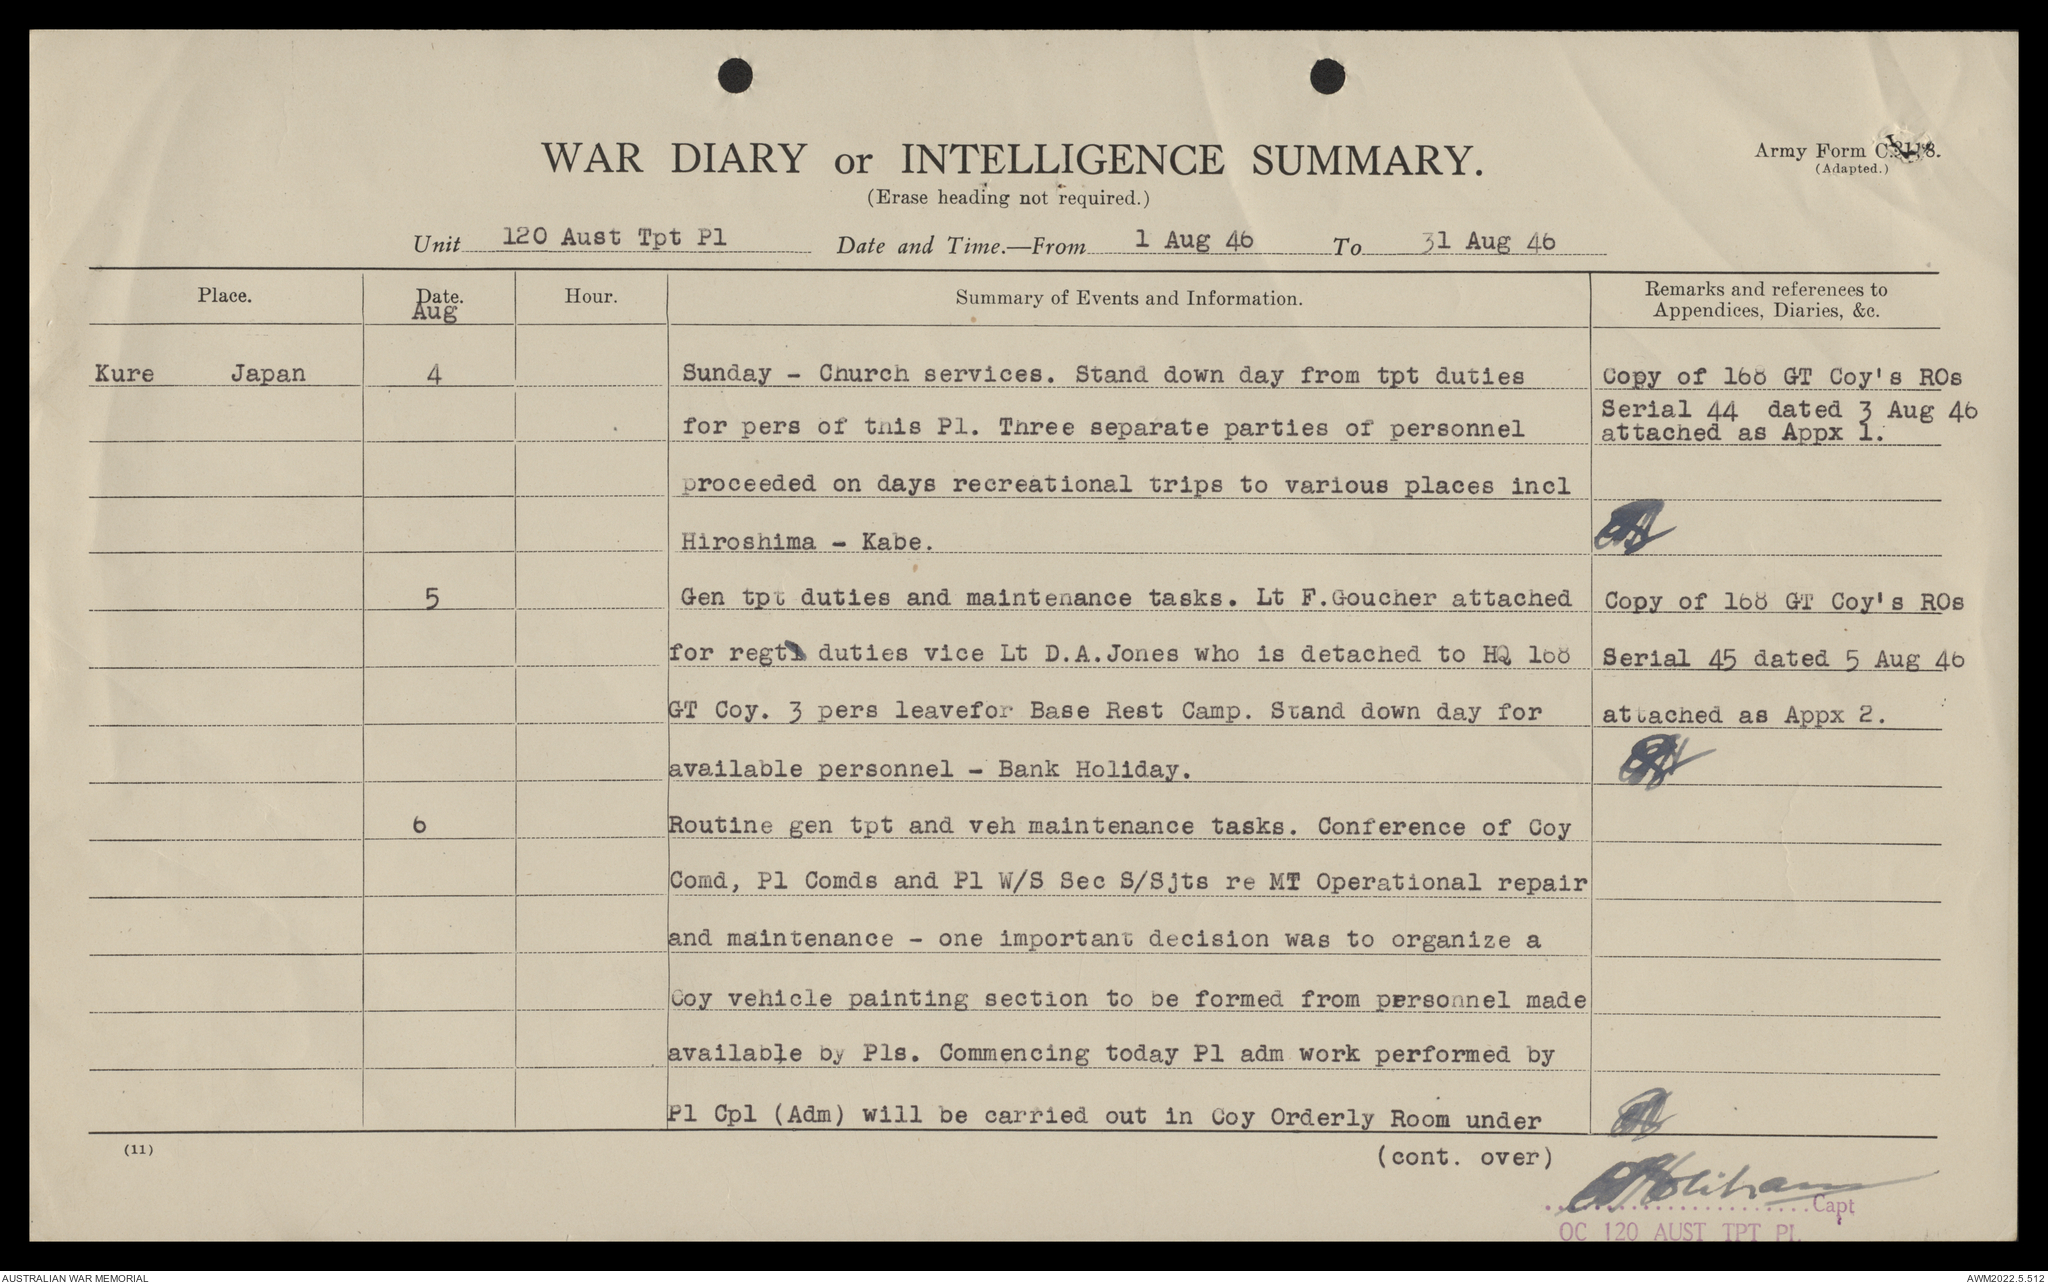 WAR DIARY or INTELLIGENCE SUMMARY.
Army Form C.2118.
(Adapted.)
(Erase heading not required.)
Unit 120 Aust Tpt Pl Date and Time.—From 1 Aug 46 To 31 Aug 46
Place. Date. Hour. Summary of Events and Information. Remarks and references to Appendices, Diaries, &c.
Aug
Kure Japan 4 Sunday - Church services. Stand down day from tpt duties
for pers of this Pl. Three separate parties of personnel
proceeded on days recreational trips to various places incl
Hiroshima - Kabe.
Copy of 168 GT Coy's ROs
Serial 44 dated 3 Aug 46
attached as Appx 1.
5 Gen tpt duties and maintenance tasks. Lt F.Goucher attached
for regtl duties vice Lt D.A.Jones who is detached to HQ 168
GT Coy. 3 pers leavefor Base Rest Camp. Stand down day for
available personnel - Bank Holiday.
Copy of 168 GT Coy's ROs
Serial 45 dated 5 Aug 46
attached as Appx 2.
6 Routine gen tpt and veh maintenance tasks. Conference of Coy
Comd, Pl Comds and Pl W/S Sec S/Sjts re MT Operational repair
and maintenance - one important decision was to organize a
Coy vehicle painting section to be formed from personnel made
available by Pls. Commencing today Pl adm work performed by
Pl Cpl (Adm) will be carried out in Coy Orderly Room under
(11)
(cont. over)
Capt
OC 120 AUST TPT PL
AUSTRALIAN WAR MEMORIAL
AWM2022.5.512